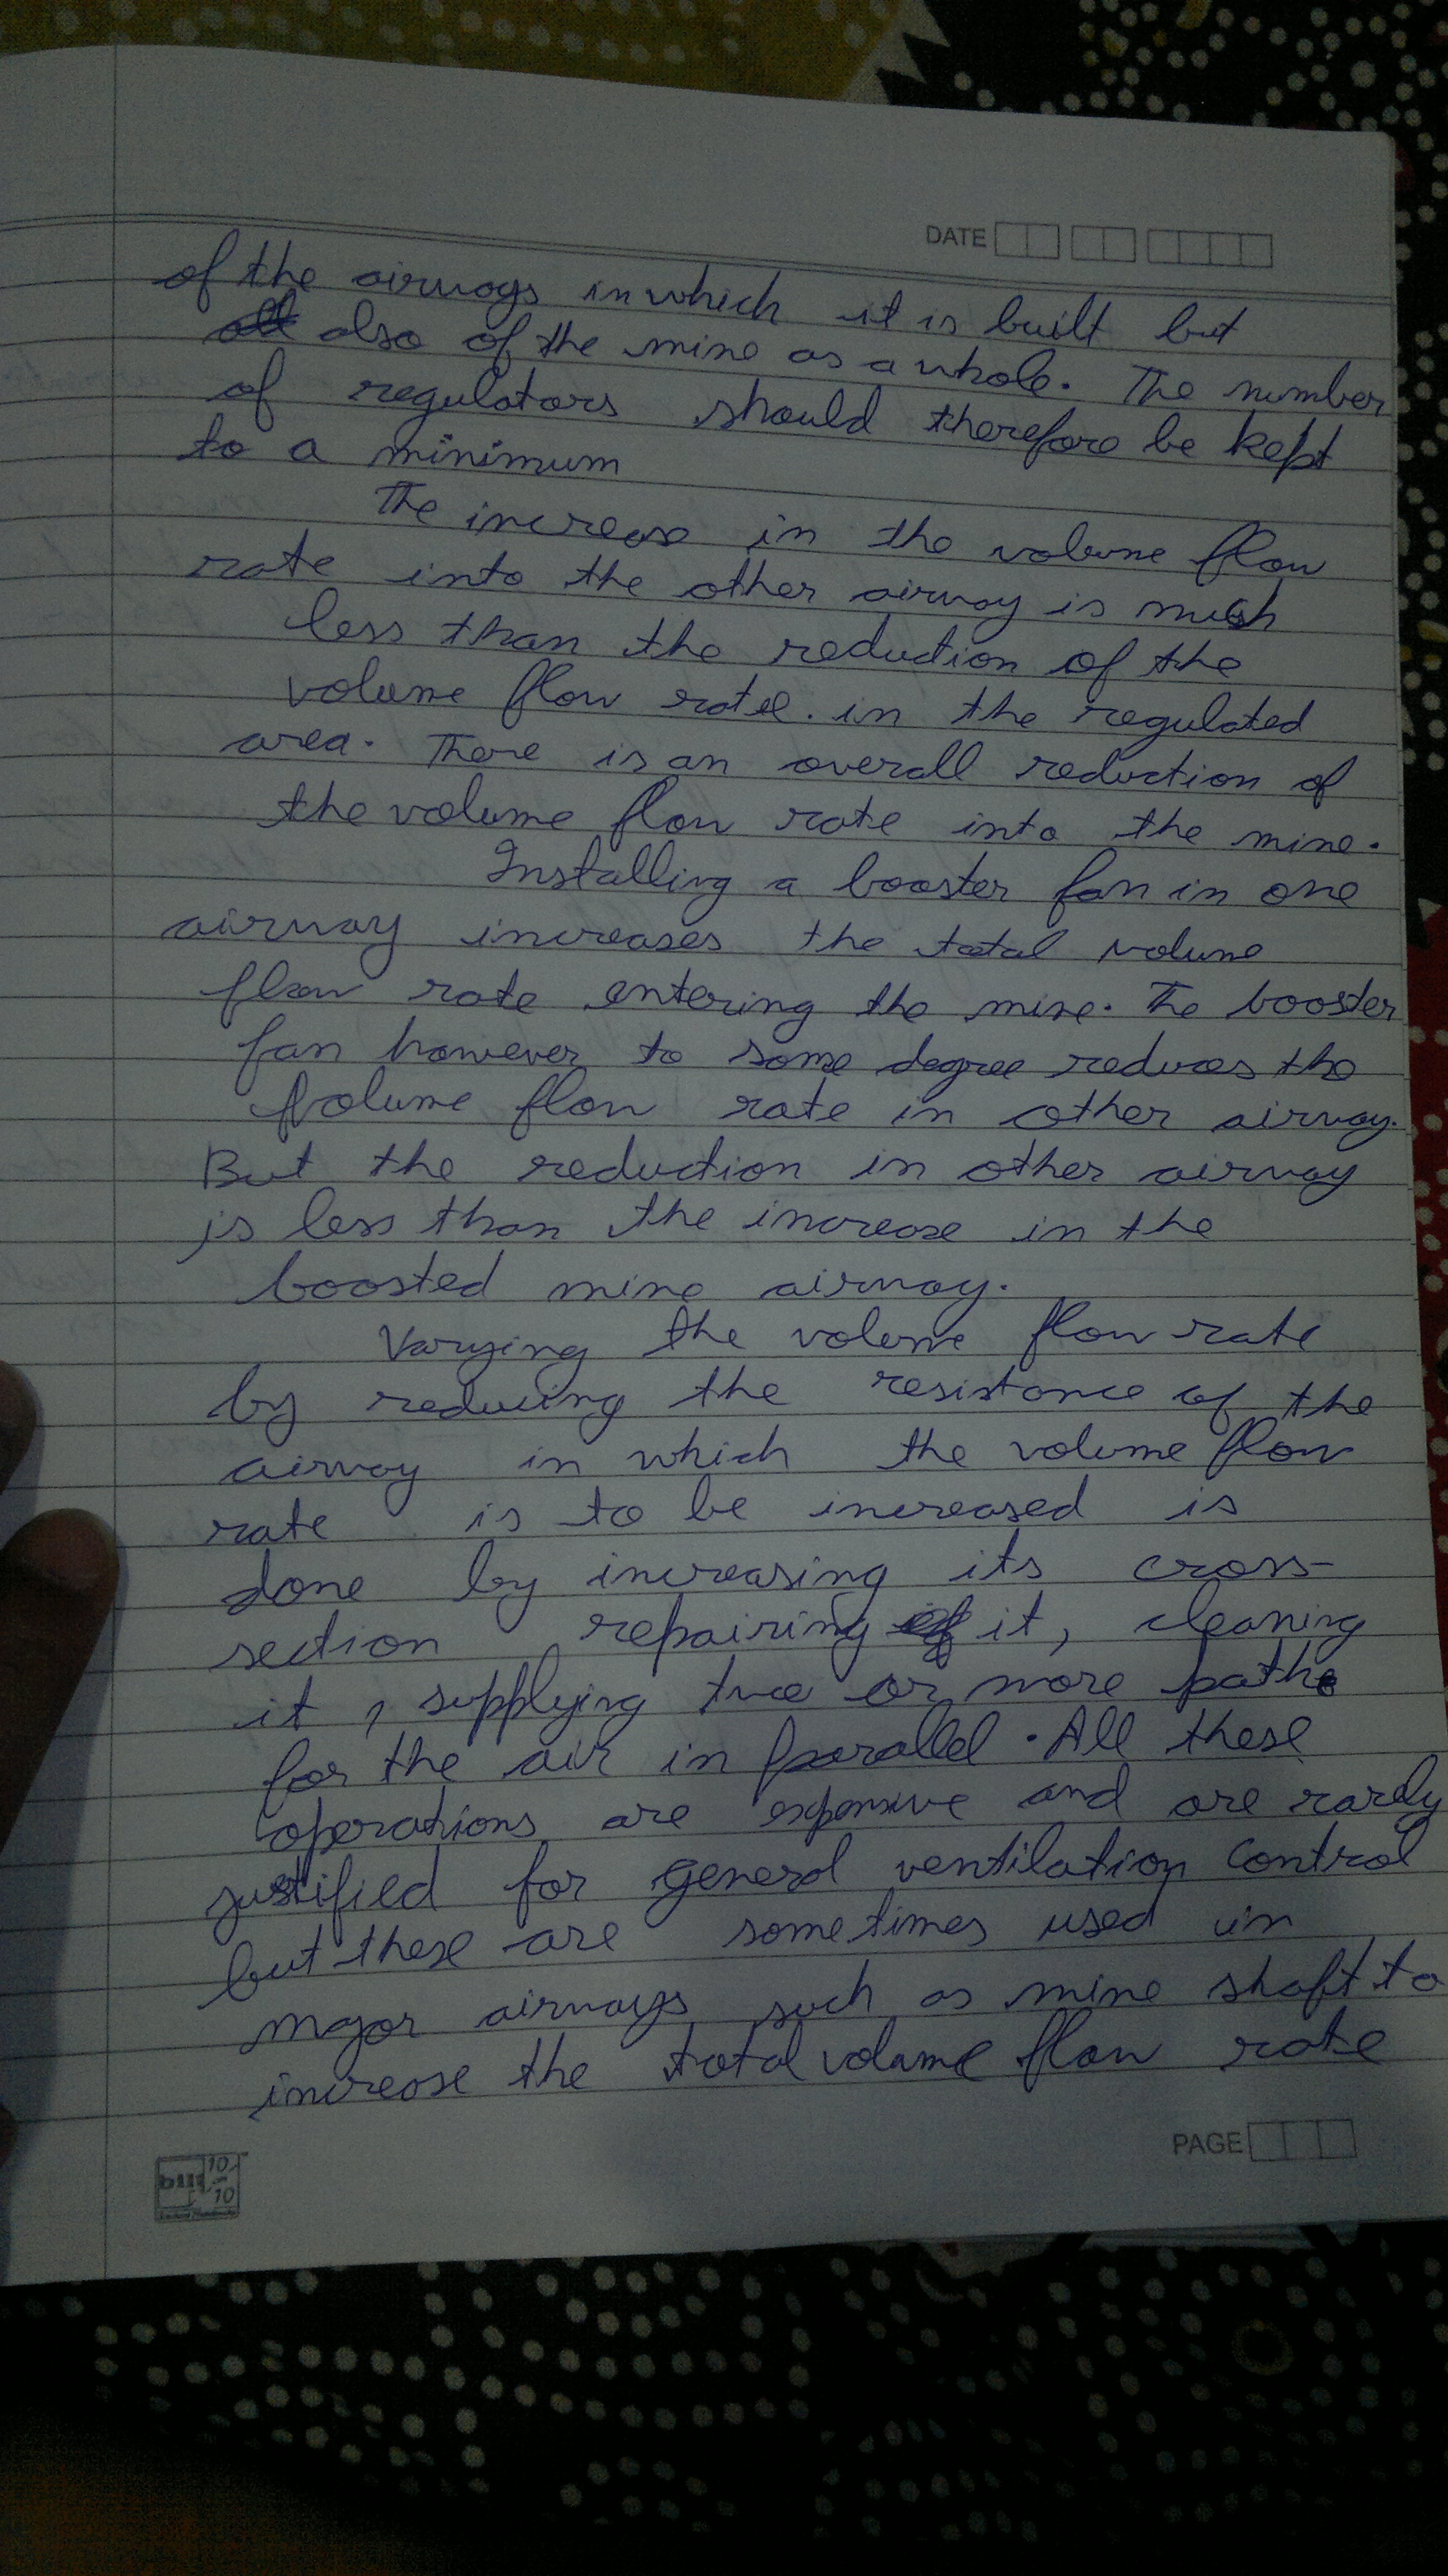 DATE
of the airways in which it is built but
also of the mine as a whole. The number
of regulators should therefore be kept
to a minimum
The increase in the volume flow
rate into the other airway is much
less than the reduction of the
volume flow rate. in the regulated
area. There is an overall reduction of
the volume flow rate into the mine.
Installing a booster fan in one
airway increases the total volume
flow rate entering the mine. The booster
fan however to some degree reduces the
volume flow rate in other airway.
But the reduction in other airway
is less than the increase in the
boosted mine airway.
Varying the volume flow rate
by reducing the resistance of the
airway in which the volume flow
rate is to be increased is
done by increasing its cross-
section repairing it, cleaning
it, supplying two or more paths
for the air in parallel. All these
operations are expensive and are rarely
justified for general ventilation control
but these are sometimes used in
major airways such as mine shaft to
increase the total volume flow rate
PAGE
10
10